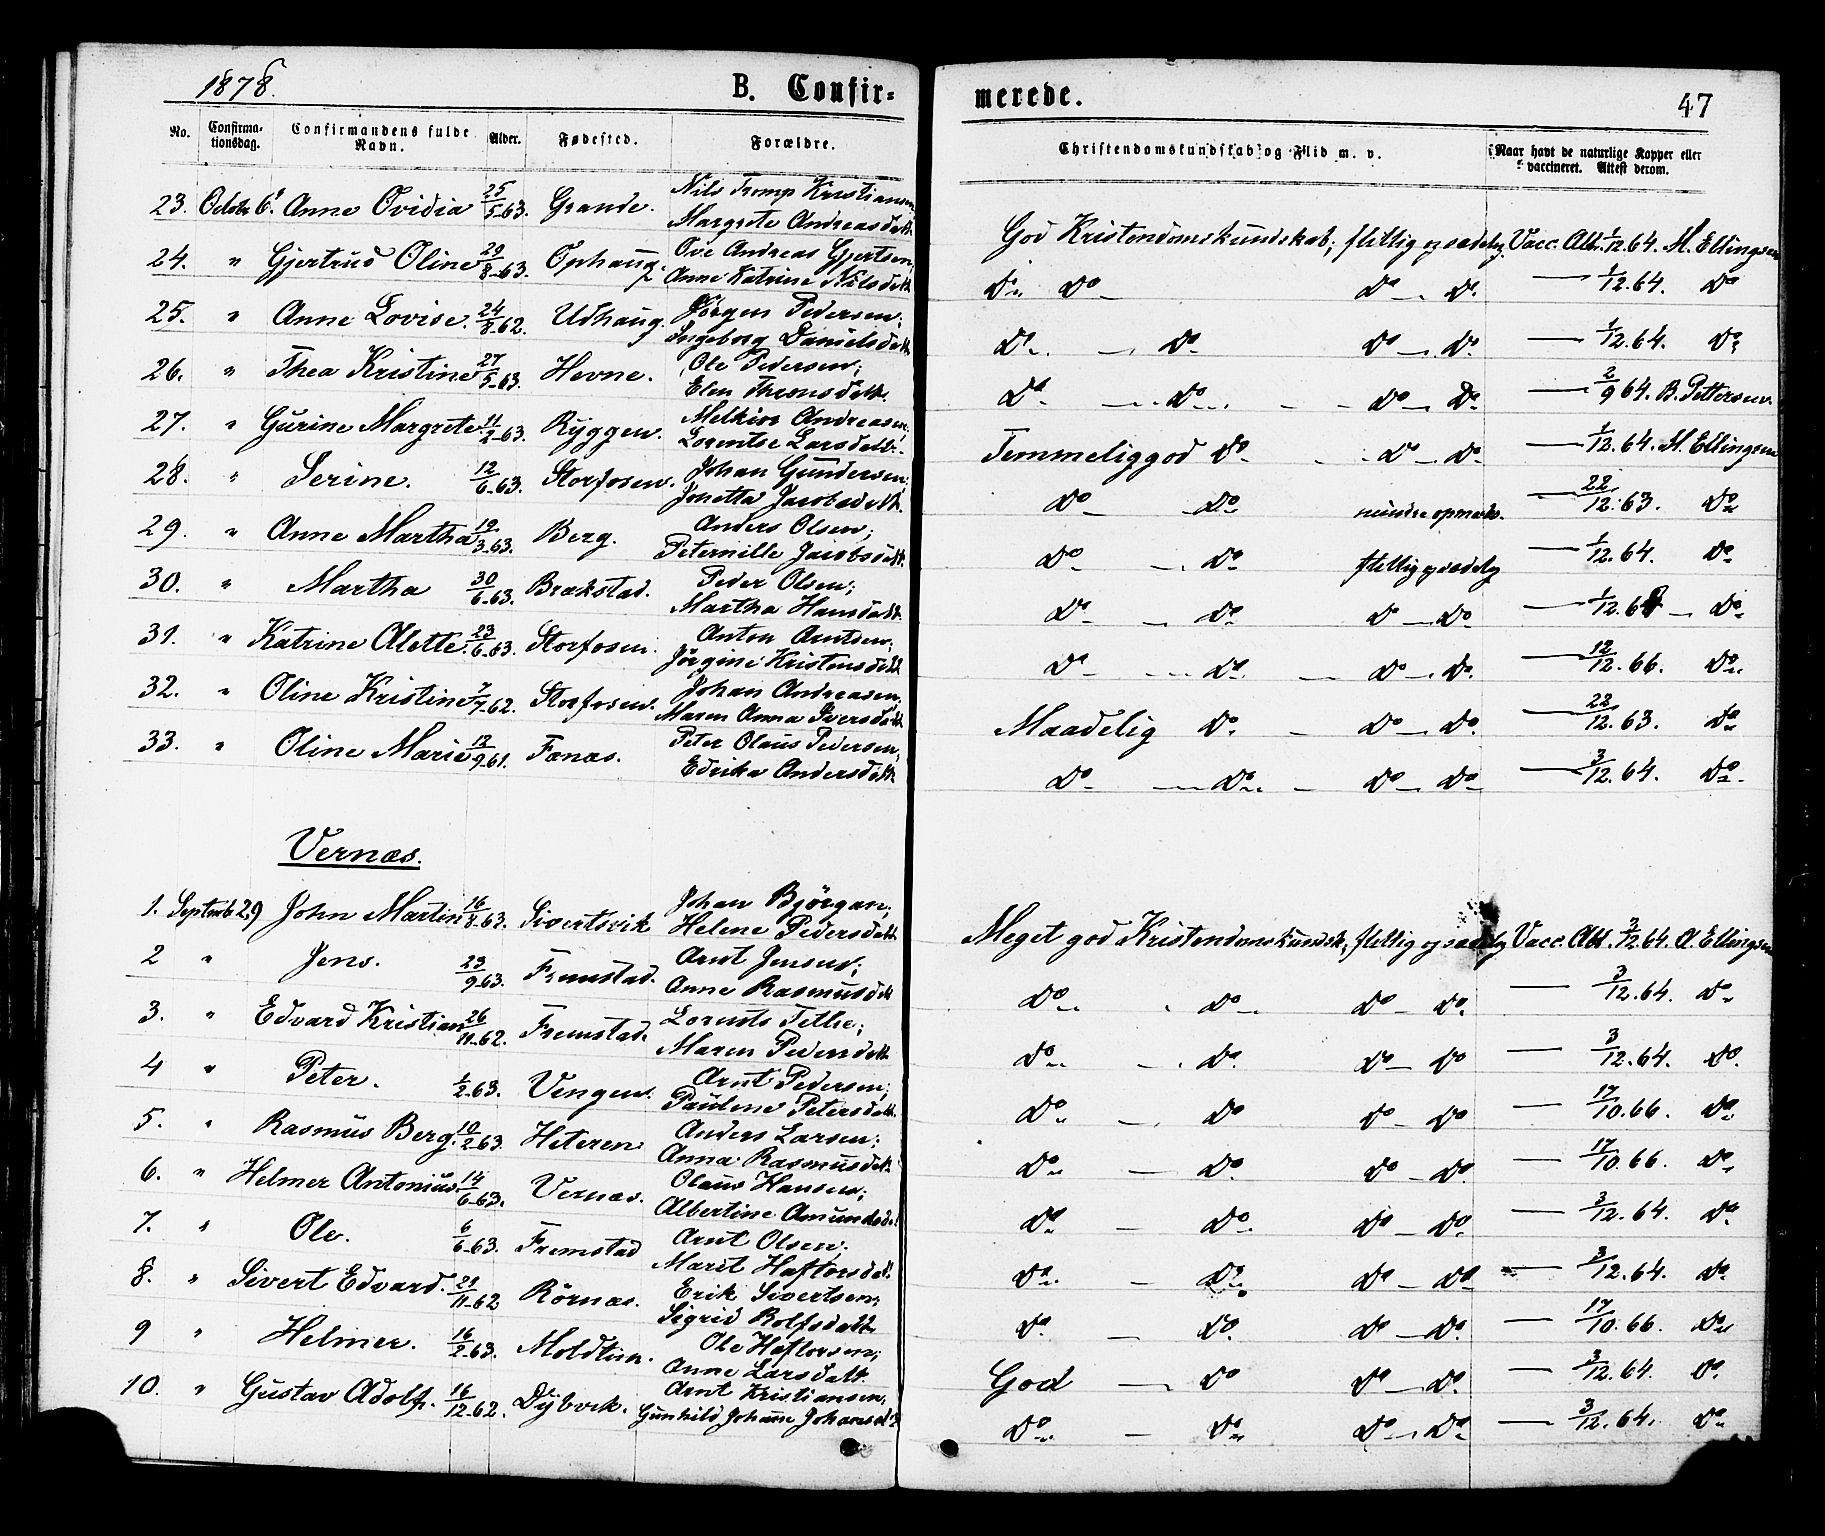 1878.
B. Confir-
merede.
47
No.
Confirma-
tionsdag.
Confirmandens fulde
Navn.
Alder.
Fødested.
Forældre.
Christendomskundskab og Flid m. v.
Naar havt de naturlige Kopper eller
vaccineret. Attest derom.
23. Octobr 6. Anne Ovidia 25/5-63. Grande. Nils Tromp Kristiansen, Margrete Andreasdatt. God Kristendomskundskab; flittig og sædelig. Vacc. Att. 1/12.64. M. Ellingsen
24. " Gjertrud Oline 29/8-63. Ophaug. Ove Andreas Gjertsen, Anne Katrine Nilsdatt. Do Do Do Do — 1/12.64. Do
25. " Anne Lovise. 24/8-62. Udhaug. Jørgen Pedersen; Ingeborg Danielsdatt. Do Do Do Do — 1/12.64. Do
26. " Thea Kristine 27/5-63. Hevne. Ole Pedersen; Elen Thomsdatt. Do Do Do Do — 2/9 64. B. Pettersen.
27. " Gurine Margrete. 11/2-63. Ryggen. Melkior Andreasen; Lorentse Larsdatt. Temmelig god Do Do Do — 1/12.64. M. Ellingsen
28. " Serine. 12/6-63. Storfosen. Johan Gundersen; Jonetta Jacobsdatt. Do Do mindre opmærks. — 22/12.63. Do
29. " Anne Martha 19/3-63. Berg. Anders Olsen; Peternille Jacobsdatt. Do Do flittig og sædelig — 1/12.64. Do
30. " Martha 30/6-63. Brækstad. Peder Olsen; Martha Hansdatt. Do Do Do Do — 1/12.64 Do
31. " Katrine Alette. 23/6-63. Storfosen. Anton Arntsen; Jørgine Kristensdatt Do Do Do Do — 12/12.66. Do
32. " Oline Kristine 7/7-62. Storfosen. Johan Andreasen; Maren Anna Iversdatt Maadelig Do Do Do — 22/12.63. Do
33. " Oline Marie 12/9-61. Fænæs. Peter Olaus Pedersen, Edrika Andersdatt Do Do Do Do — 3/12.64. Do
Vernæs.
1. Septemb 29 John Martin 16/8-63. Sivertsvik Johan Bjørgan; Helene Pedersdatt Meget god Kristendomskundsk; flittig og sædelig Vacc. Att. 3/12.64. A. Ellingsen
2 " Jens. 23/9-63. Fremstad. Arnt Jensen; Anne Rasmusdatt Do Do Do Do — 3/12.64. Do
3. " Edvard Kristian 26/11-62. Fremstad. Lorents Tethe; Maren Pedersdatt Do Do Do Do — 3/12.64. Do
4 " Peter. 1/2-63. Vengen. Arnt Pedersen; Pauline Petersdatt. Do Do Do Do — 17/10.66. Do
5. " Rasmus Berg. 10/2-63. Heteren Anders Larsen; Anna Rasmusdatt Do Do Do Do — 17/10.66. Do
6. " Helmer Antonius. 14/6-63. Vernæs. Olaus Hansen; Albertine Amundsd. Do Do Do Do — 3/12.64. Do
7. " Ole. 6/6-63. Fremstad Arnt Olsen; Marit Haftorsdatt. Do Do Do Do — 3/12.64. Do
8. " Sivert Edvard. 21/11-62 Rörnæs. Erik Sivertsen; Sigrid Rolfsdatt Do Do Do Do — 17/10.66. Do
9 " Helmer. 16/2-63. Moldtun. Ole Haftorsen; Anne Larsdatt. God Do Do Do — 3/12.64. Do
10. " Gustav Adolf. 16/12-62. Dybvik. Arnt Kristiansen, Gunhild Johanne Johansd. Do Do Do Do — 3/12.64. Do